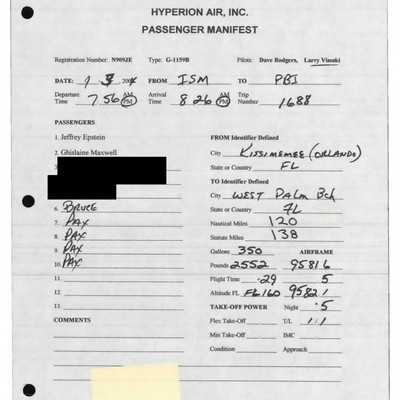 HYPERION AIR, INC.
PASSENGER MANIFEST
Registration Number: N909JE Type: G-1159B Pilots: Dave Rodgers, Larry Visoski
DATE: 9-3-2004 FROM ISM TO PBI
Departure Time 7:56 AM PM Arrival Time 8:26 AM PM Trip Number 1688
PASSENGERS
1. Jeffrey Epstein FROM Identifier Defined
2. Ghislaine Maxwell City KISSIMEMEE (ORLANDO)
State or Country FL
TO Identifier Defined
City WEST PALM Bch
6. BRUCE State or Country FL
7. PAX Nautical Miles 120
8. PAX Statute Miles 138
9. PAX Gallons 350 AIRFRAME
10. PAX Pounds 2552 9581.6
11. Flight Time .29 .5
12. Altitude FL FL160 9582.1
13. TAKE-OFF POWER Night .5
COMMENTS Flex Take-Off T/L 1/1
Min Take-Off IMC
Condition Approach